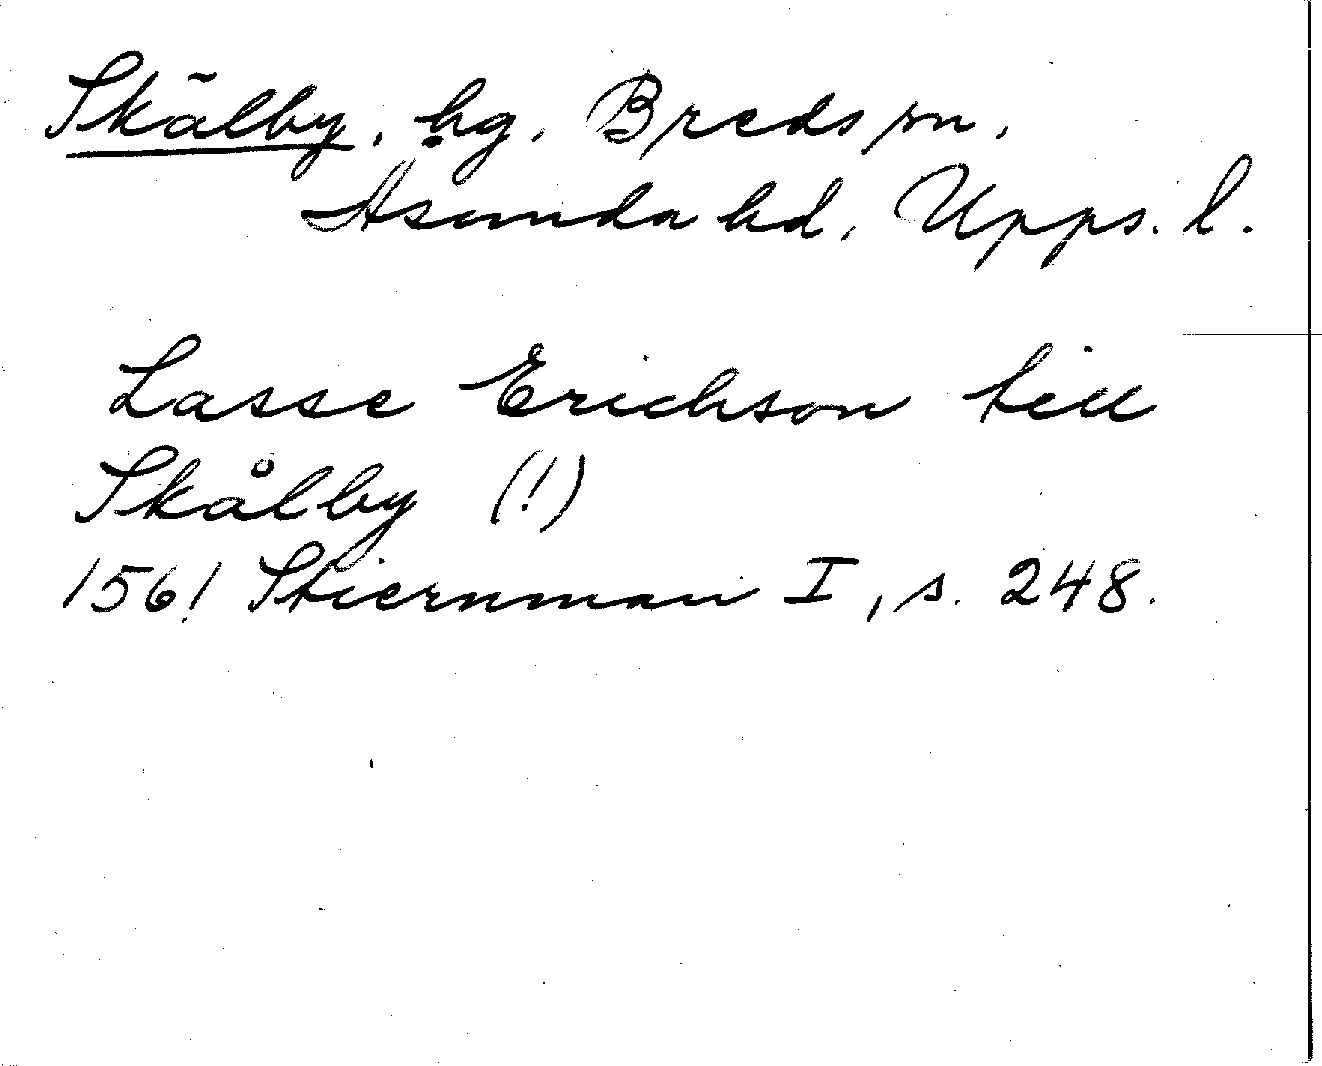 Skälby, hg. Breds sn.
Åsunda hd, Upps. l.
Lasse Erichson till
Skålby (!)
1561 Stiernman I, s. 248.